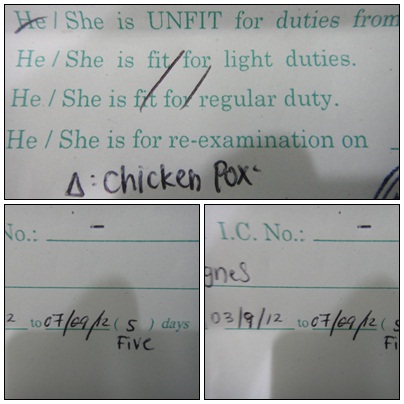 He / She is UNFIT for duties from
He / She is fit for light duties.
He / She is fit for regular duty.
He / She is for re-examination on
Δ: Chicken Pox
No.: -
2 to 07/09/12 ( 5 ) days
Five
I.C. No.: -
gnes
03/9/12 to 07/09/12 ( 5
Fi